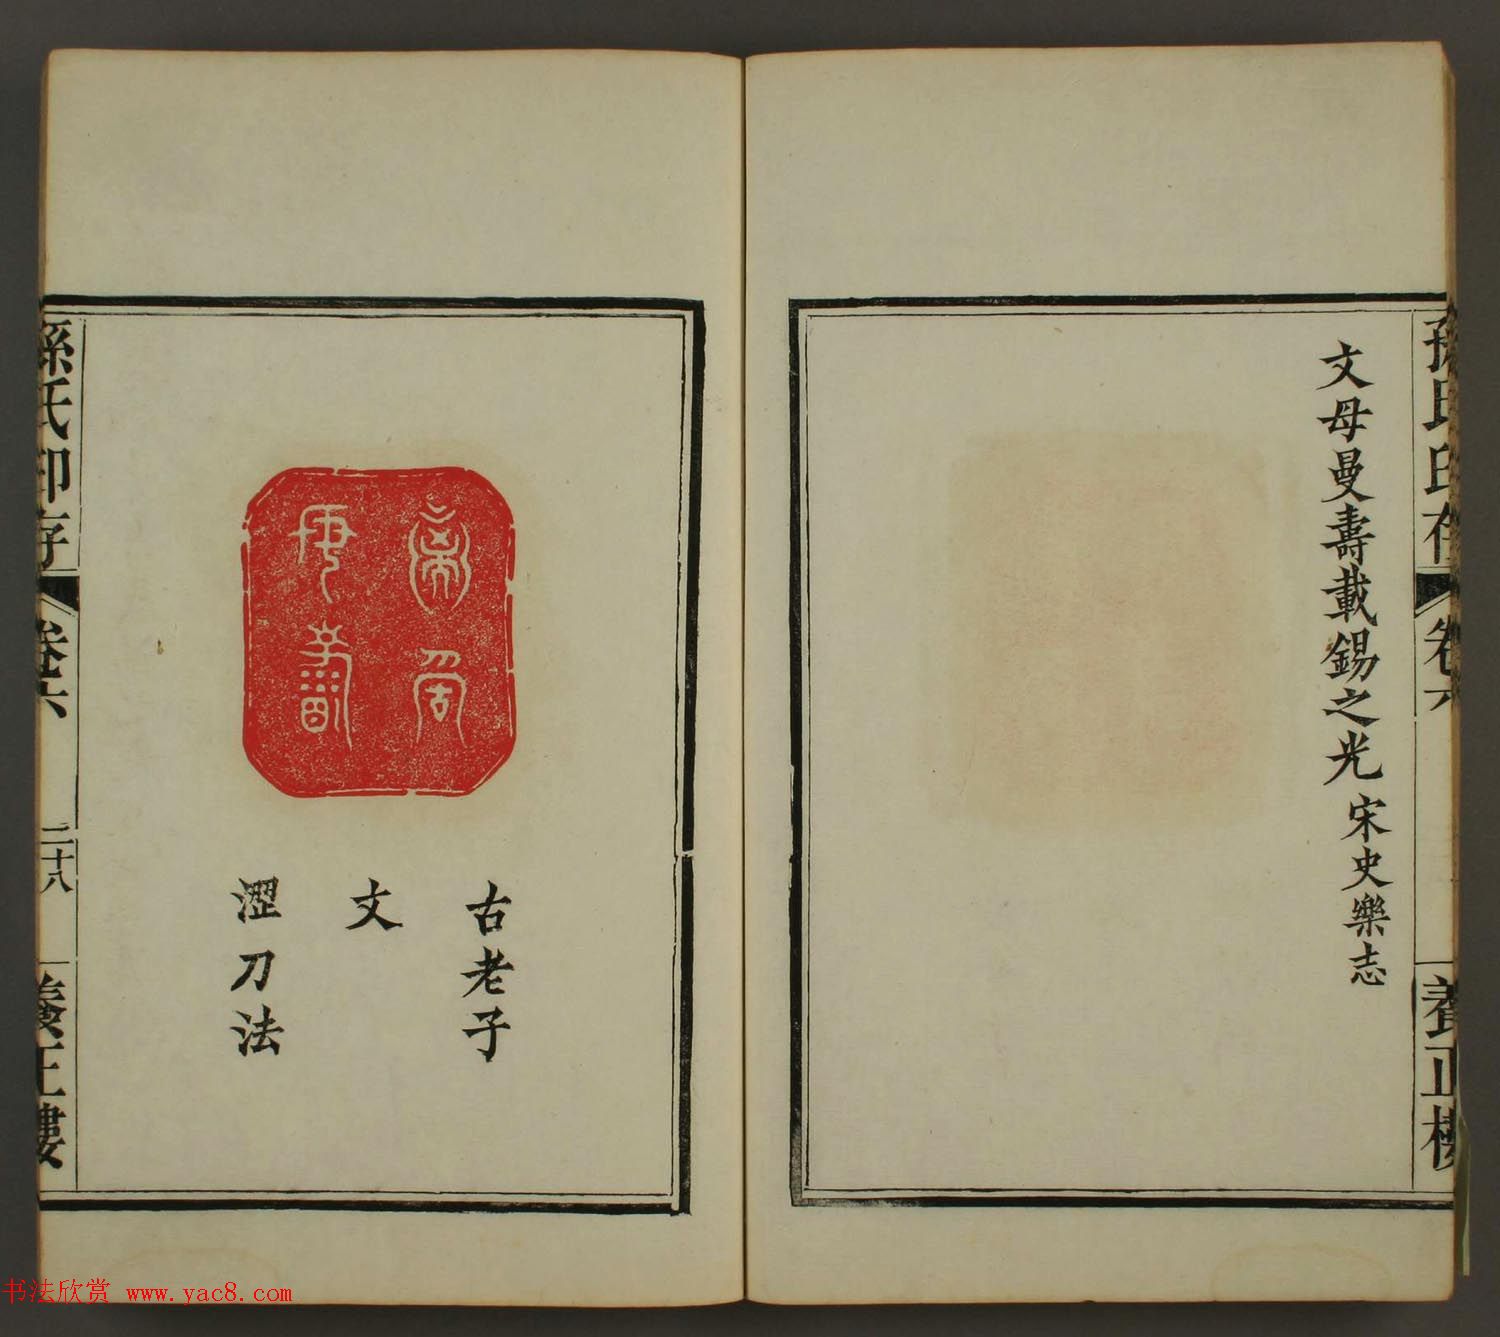 孫氏印存
卷六
養正樓
文母曼壽載錫之光 宋史樂志
古老子
文
澀刀法
孫氏印存
卷六
二十八
養正樓
书法欣赏 www.yac8.com